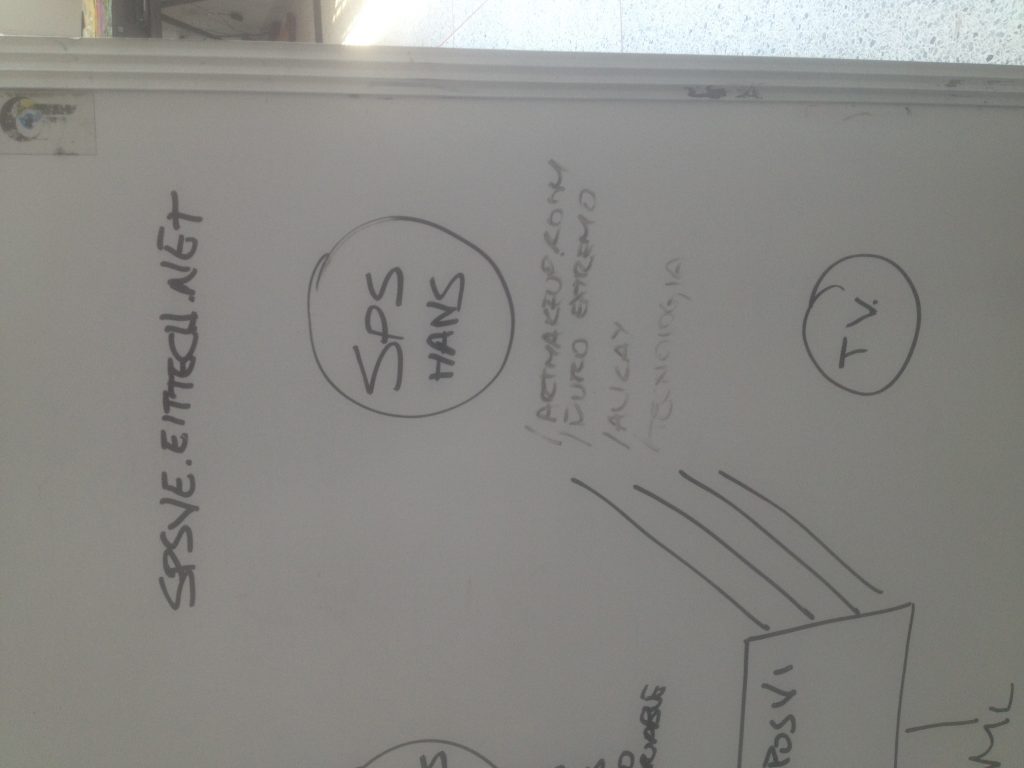 SPSVE.EITTECH.NET
SPS
HANS
/ACTMAKEUP.ROM
/DURO EXTREMO
/ALICAY
/TECNOLOGIA
T.V.
POSVI
ML